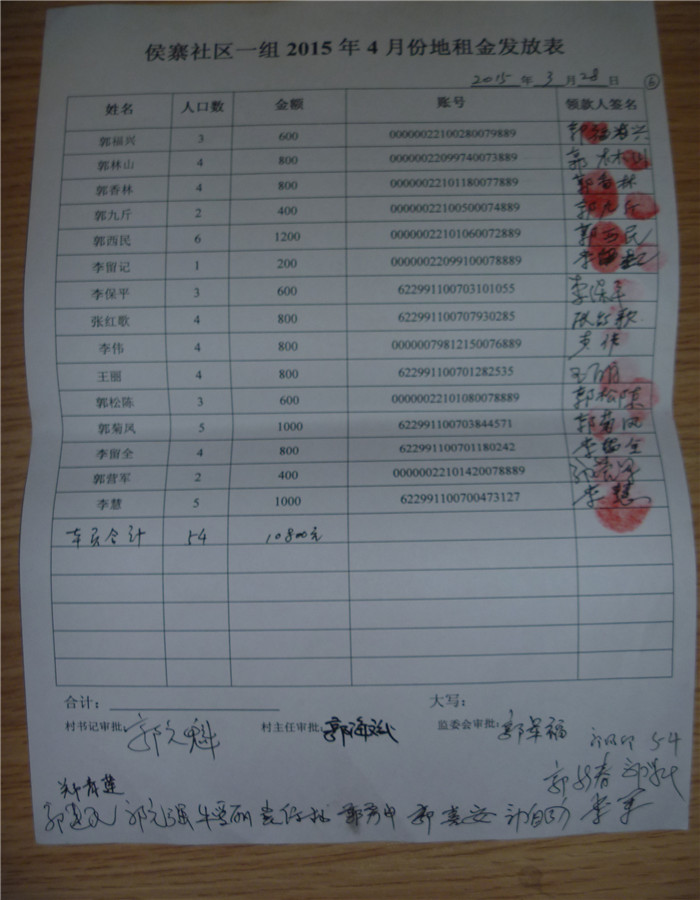 侯寨社区一组 2015 年 4 月份地租金发放表
2015 年 3 月 28 日 ⑥
姓名 人口数 金额 账号 领款人签名
郭福兴 3 600 00000022100280079889
郭林山 4 800 00000022099740073889 郭林山
郭香林 4 800 00000022101180077889 郭香林
郭九斤 2 400 00000022100500074889 郭九斤
郭西民 6 1200 00000022101060072889 郭西民
李留记 1 200 00000022099100078889
李保平 3 600 622991100703101055 李保平
张红歌 4 800 622991100707930285 张红歌
李伟 4 800 00000079812150076889
王丽 4 800 622991100701282535 王丽
郭松陈 3 600 00000022101080078889 郭松陈
郭菊凤 5 1000 622991100703844571 郭菊凤
李留全 4 800 622991100701180242 李留全
郭营军 2 400 00000022101420078889
李慧 5 1000 622991100700473127 李慧
本页合计 54 10800元
合计： 大写：
村书记审批: 郭元魁 村主任审批: 郭海斌 监委会审批: 郭军福
54
李军